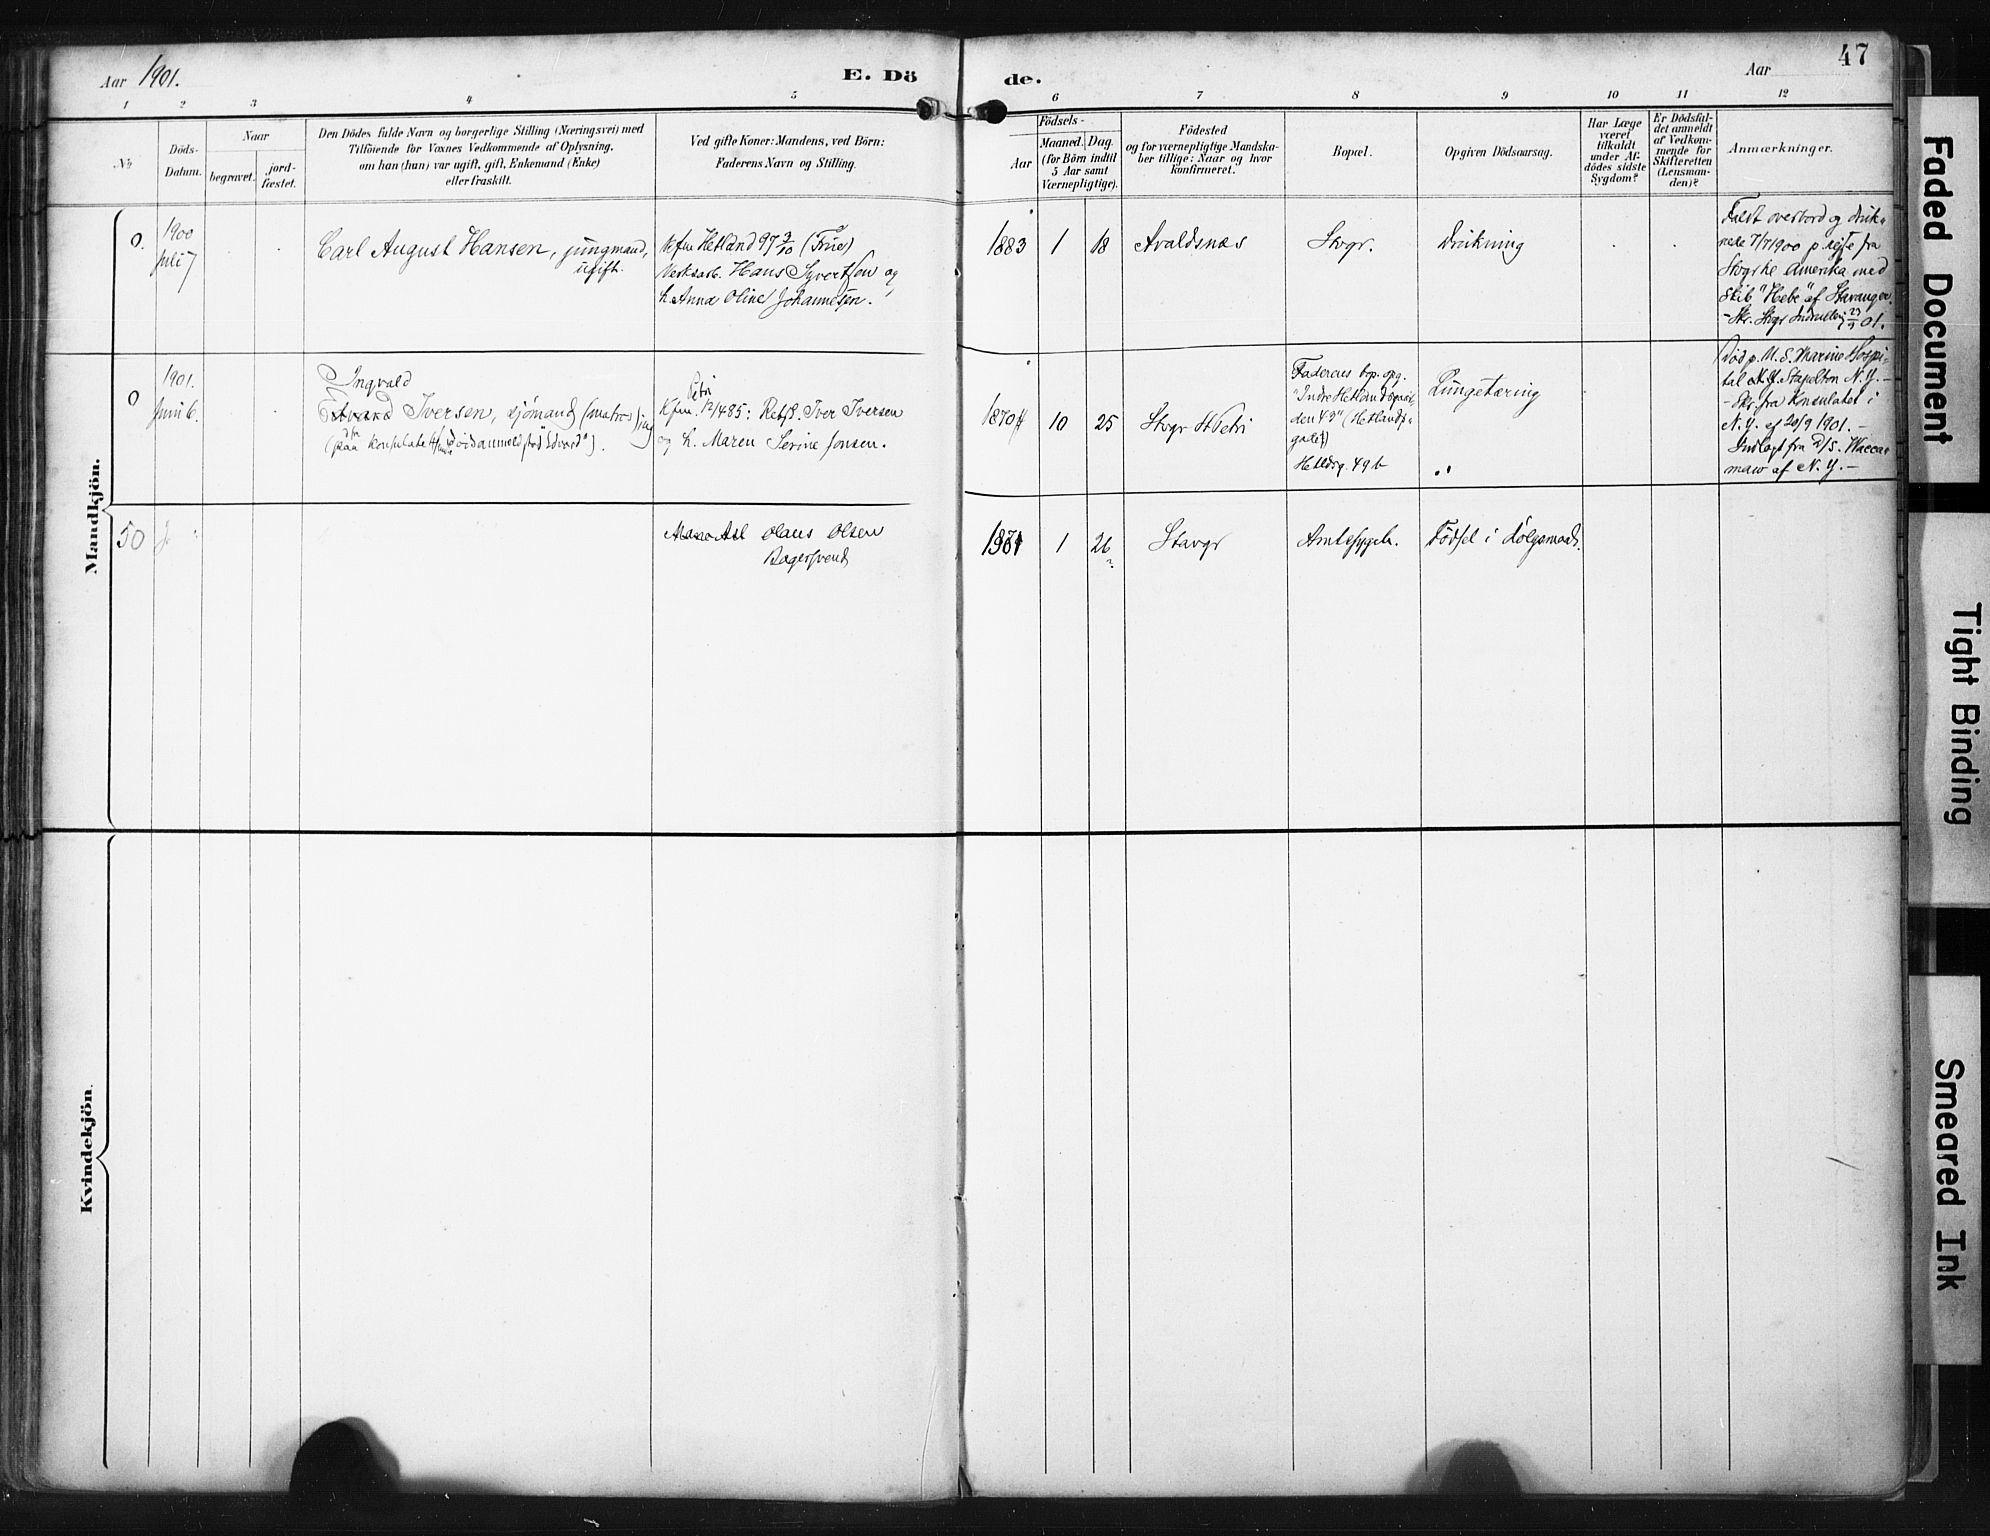 Aar 1901.
E. Döde.
Aar
47
1 2 3 4 5 6 7 8 9 10 11 12
No
Döds-
Datum.
Naar
begravet.
jord-
fæstet.
Den Dödes fulde Navn og borgerlige Stilling (Næringsvei) med
Tilföiende for Voxnes Vedkommende af Oplysning,
om han (hun) var ugift, gift, Enkemand (Enke)
eller fraskilt.
Ved gifte Koner: Mandens, ved Börn:
Faderens Navn og Stilling.
Födsels-
Aar
Maaned. Dag.
(for Börn indtil
5 Aar samt
Værnepligtige).
Födested
og for værnepligtige Mandska-
ber tillige: Naar og hvor
konfirmeret.
Bopæl.
Opgiven Dödsaarsag.
Har Læge
været
tilkaldt
under Af-
dödes sidste
Sygdom?
Er Dödsfal-
det anmeldt
af Vedkom-
mende for
Skifteretten
(Lensman-
den)?
Anmærkninger.
Mandkjön.
0.
1900
Juli 7
Carl August Hansen, jungmand,
ugift.
Kfm Hetland 97 3/10 (Frue)
Verksarb. Hans Syvertsen og
h. Anna Oline Johannesen.
1883
1
18
Avaldsnæs
Stvgr.
Drukning
Faldt overbord og druk-
nede 7/7 1900 p. rejse fra
Stvgr til Amerika med
Skib "Hebe" af Stavanger.
0
1901.
Juni 6.
Ingvald
Iversen, sjømand (matros)
Petri
Kfm. 12/4 85: Rebsl. Iver Iversen
og h. Maren Serine Jonsen.
1870
10
25
Stvgr St Petri
Faderens bop. opg.
den 49" (Hetlands-
gate)
Hetldsg. 49 b
Lungetæring
Död p. U. S. Marine Hospi-
tal Stapelton N.Y. -
- Skr. fra Konsulatet i
N.Y. af 20/9 1901. -
Indlagt fra D/S. Wacca-
maw af N.Y. -
50
Olaus Olsen
Bagersvend
1
26
Stavgr
Amtssygeh.
Födsel i Dølgsmaal.
Kvindekjön.
Faded Document
Tight Binding
Smeared Ink